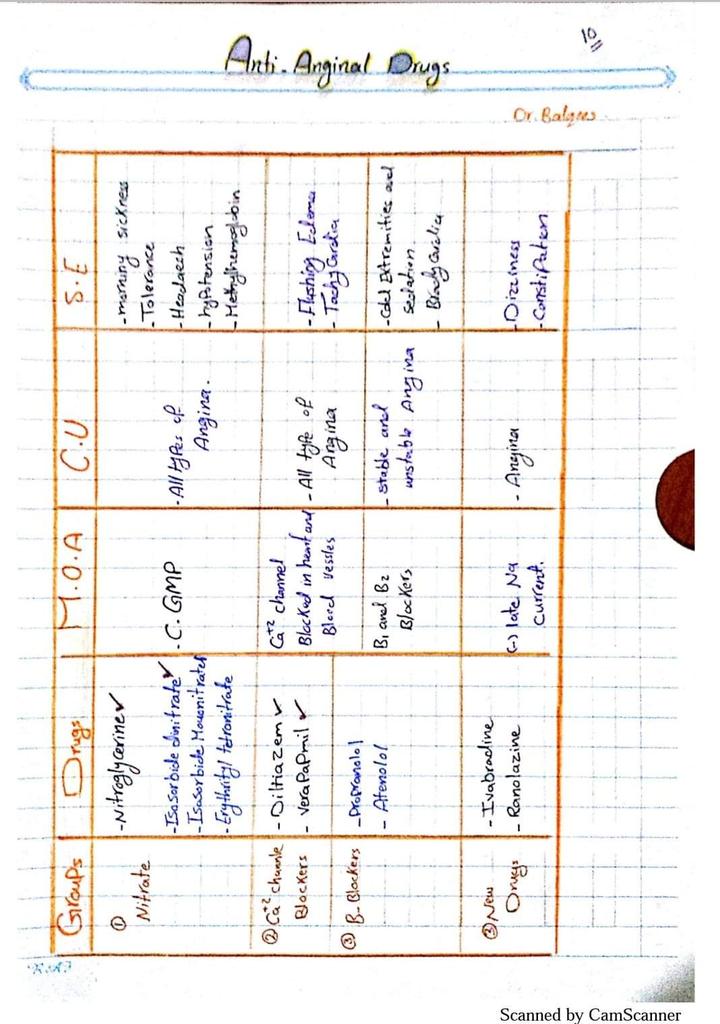 10
Anti-Anginal Drugs
Dr. Balqees
Groups
Drugs
M.O.A
C.U
S.E
① Nitrate
- Nitroglycerine ✓
- Isosorbide dinitrate ✓
- Isosorbide Mononitrate
- Erythrityl tetranitrate
- C. GMP
- All types of
Angina.
- morning sickness
- Tolerance
- Headach
- hypotension
- Methylhemoglobin
② Ca+2 channle
Blockers
- Diltiazem ✓
- Verapapmil ✓
Ca+2 channel
Blocked in heart and
Blood vessles
- All type of
Angina
- Flushing Edema
- Tachycardia
③ B. Blockers
- Propranolol
- Atenolol
B1 and B2
Blockers
- Stable and
unstable Angina
- Cold Extremities and
sedation
- Bradycardia
③ New
Drugs
- Ivabradine
- Ranolazine
(-) late Na
current.
- Angina
- Dizziness
- Constipation
Scanned by CamScanner